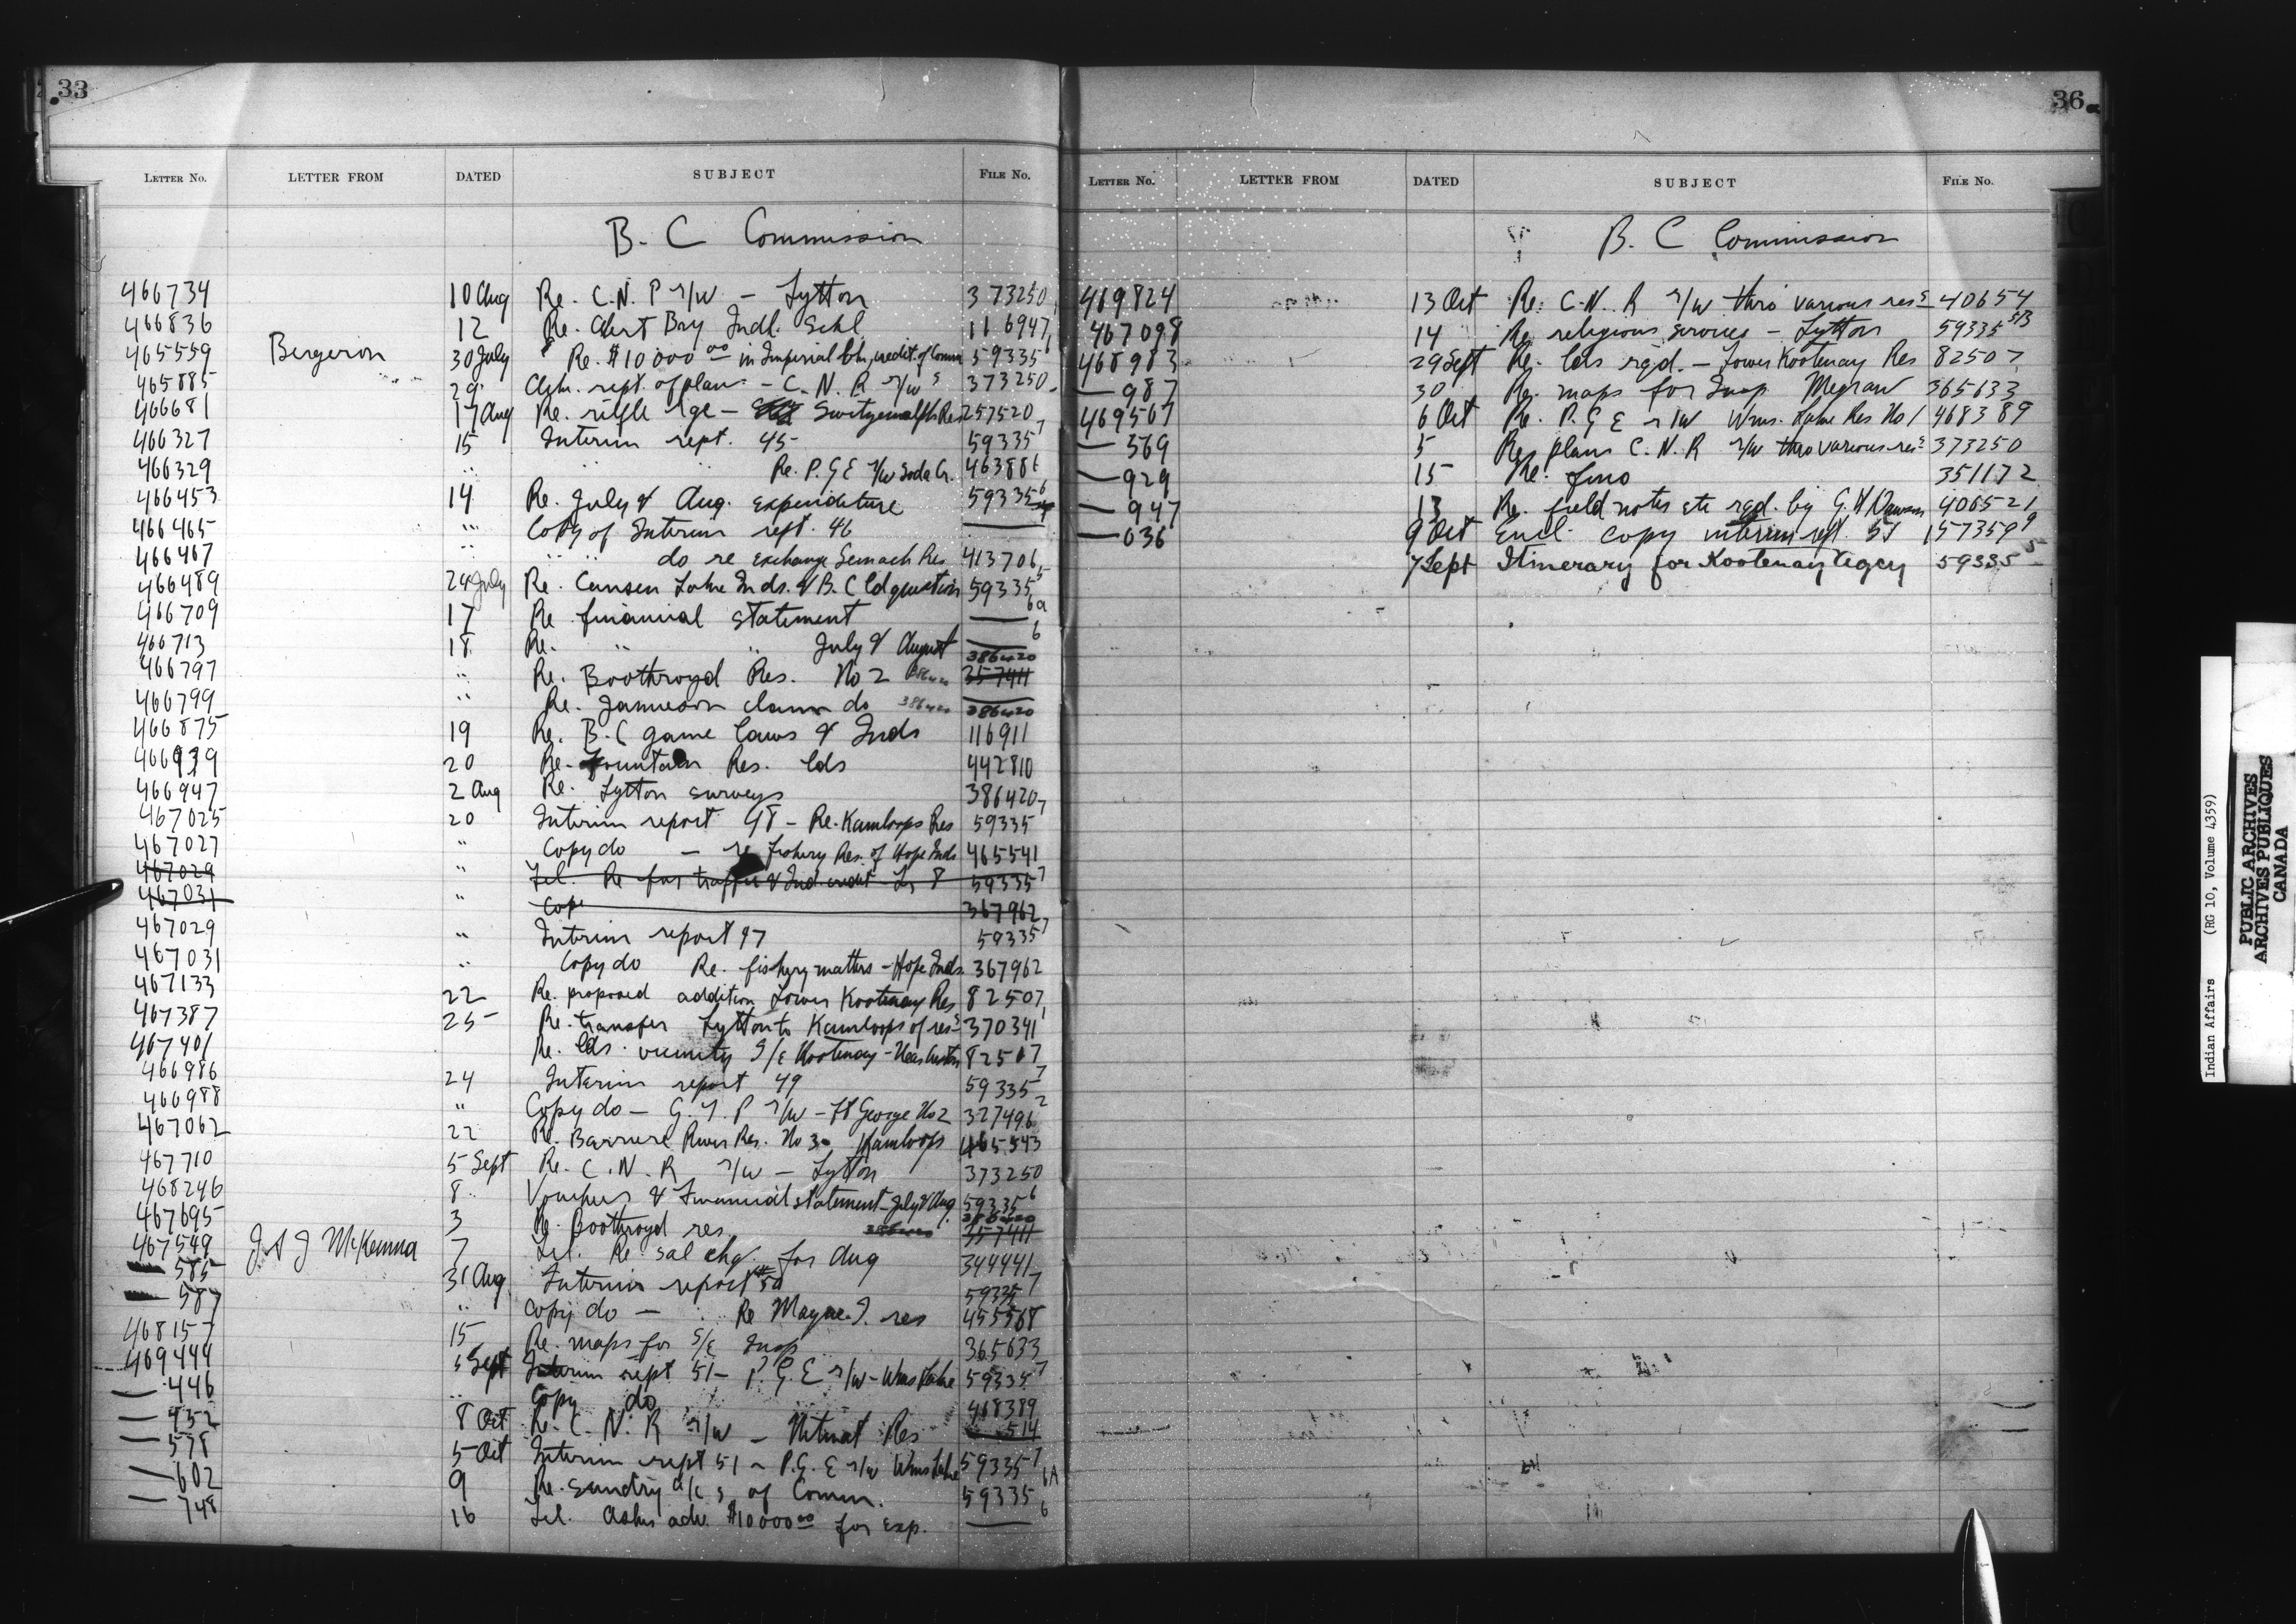 33
LETTER NO. LETTER FROM DATED SUBJECT FILE NO.
B. C Commission
466734 10 Aug Re. C.N. P r/w - Lytton 373250
466836 12 Re. Alert Bay Indl. Schl 116947
465559 Bergeron 30 July Re. $10000 00 in Imperial Bk, credit of Comm 59335
465885 29 Clgm. rept. of plans - C. N. R r/w s 373250
466681 17 Aug Re. rifle rge - Switzemalph Res 257520
466327 15 Interim rept. 45 59335 7
466329 " " " Re. P. G E r/w Soda Cr. 463886
466453 14 Re. July & Aug. expenditure 59335 6
466465 " Copy of Interim rept. 46 ——
466467 " " " do re exchange Semach Res 413706
466489 24 July Re. Cansen Lake Inds. & B. C ld question 59335 5
466709 17 Re financial statement —— 6a
466713 18 Re. " " July & August —— 6
466797 " Re. Boothroyd Res. No 2 386420 357411 386420
466799 " Re. Jamieson claim do 386420 —— 386420
466875 19 Re. B. C game laws & Inds 116911
466939 20 Re. Fountain Res. lds 442810
466947 2 Aug Re. Lytton surveys 386420
467025 20 Interim report 48 - Re. Kamloops Res 59335 7
467027 " Copy do - re fishery Res. of Hope Inds 465541
467029 " Tel. Re fur traffic & Ind. credit 59335 7
467031 " Cop 367962
467029 " Interim report 47 59335 7
467031 " Copy do Re. fishery matters - Hope Inds. 367962
467133 22 Re. proposed addition Lower Kootenay Res 82507
467387 25 Re. transfer Lytton to Kamloops of res s 370341
467401 Re. lds. vicinity S/E Kootenay - 82507
466986 24 Interim report 49 59335 7
466988 " Copy do - G. T. P r/w - Ft George No 2 327496 2
467062 22 Re. Barriere River Res. No 3 Kamloops 465543
467710 5 Sept Re. C. N. R r/w - Lytton 373250
468246 8 Vouchers & Financial statement - July & Aug. 59335 6
467695 3 Re. Boothroyd res. 386420 357411 386420
467549 J A J McKenna 7 Tel. Re sal chq. for Aug 344441
—— 585 31 Aug Interim report # 50 59335 7
—— 587 " Copy do - Re Mayne I. res 455568
468157 15 Re. maps for S/E Insp 365633
469444 5 Sept Interim rept 51 - P. G. E r/w - Wms Lake 59335 7
—— 446 " Copy do 468389
—— 452 8 Oct Re. C. N. R r/w - Res —— 514
—— 578 5 Oct Interim rept 51 - P. G. E r/w Wms Lake 59335 7
—— 602 9 Re. sundry a/c s of Comm. 59335 6A
—— 748 16 Tel. Asks adv. $10000 00 for exp. —— 6
36
LETTER NO. LETTER FROM DATED SUBJECT FILE NO.
B. C Commission
469824 13 Oct Re. C. N. R r/w thro various res s 40654
467098 14 Re religious services - Lytton 59335 5B
468983 29 Sept Re. lds rqd. - Lower Kootenay Res 82507
—— 987 30 Re. maps for Insp Megraw 365633
469567 6 Oct Re. P. G E r/w Wms. Lake Res No 1 468389
—— 569 5 Re plans C. N. R r/w thro various res s 373250
—— 929 15 Re. 351172
—— 947 13 Re. field notes etc rqd. by G. H Dawson 406521
—— 036 9 Oct Encl. copy interim rept. 51 157359 9
7 Sept Itinerary for Kootenay Agcy 59335 5
Indian Affairs (RG 10, Volume 4359)
PUBLIC ARCHIVES
ARCHIVES PUBLIQUES
CANADA